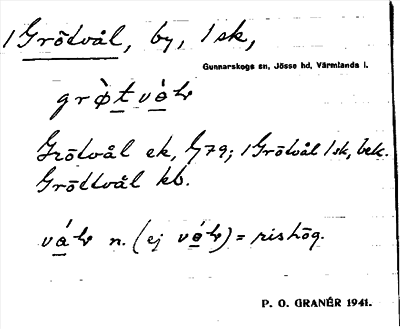 1 Grötvål, by, 1 sk,
Gunnarskogs sn, Jösse hd, Värmlands l.
grø̀tvåḷ
Grötvål ek, G79; 1 Grötvål 1 sk, bek.
Gröttvål kb.
n. (ej = rishög.
P. O. GRANÉR 1941.